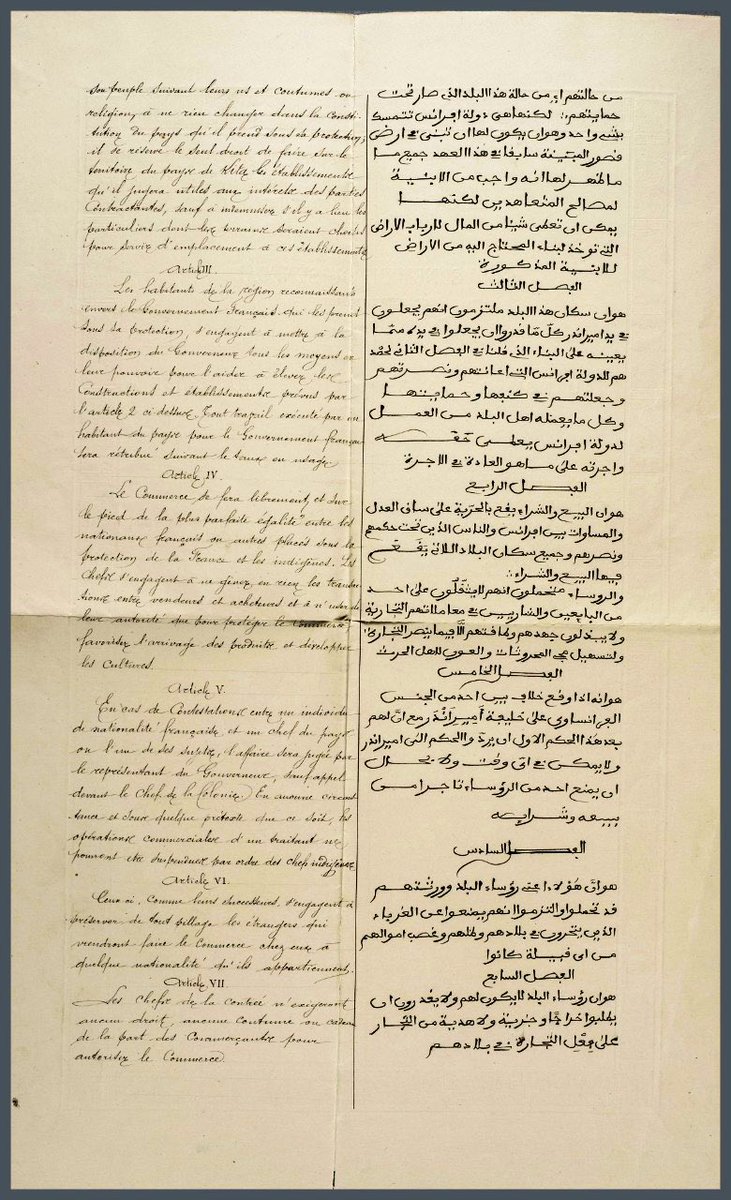 son peuple suivant leurs us et coutumes ou
religion, à ne rien changer dans la Consti-
tution du pays qu'il prend sous sa protection,
il se réserve le seul droit de faire sur le
territoire du pays de les établissements
qu'il jugera utiles aux intérêts des parties
Contractantes, sauf à indemniser s'il y a lieu les
particuliers dont les terrains seraient choisis
pour servir d'emplacement à ces établissements
Article III.
Les habitants de la région reconnaissants
envers le Gouvernement Français qui les prend
sous sa protection, s'engagent à mettre à la
disposition du Gouverneur tous les moyens en
leur pouvoir pour l'aider à élever les
Constructions et établissements prévus par
l'article 2 ci dessus. Tout travail exécuté par un
habitant du pays pour le Gouvernement français
sera rétribué suivant le taux en usage
Article IV.
Le Commerce se fera librement, et sur
le pied de la plus parfaite égalité entre les
nationaux français ou autres placés sous la
protection de la France et les indigènes. Les
Chefs s'engagent à ne gêner en rien les transac-
tions entre vendeurs et acheteurs et à n'user de
leur autorité que pour protéger le commerce
favoriser l'arrivage des produits et développer
les cultures.
Article V.
En cas de Contestations entre un individu
de nationalité française et un chef du pays
ou l'un de ses sujets, l'affaire sera jugée par
le représentant du Gouverneur, sauf appel
devant le Chef de la Colonie. En aucune circons
tance et sous quelque prétexte que ce soit, les
opérations commerciales d'un traitant ne
pourront être suspendues par ordre des chefs indigènes
Article VI.
Ceux-ci, comme leurs successeurs, s'engagent à
préserver de tout pillage les étrangers qui
viendront faire le Commerce chez eux à
quelque nationalité qu'ils appartiennent.
Article VII
Les Chefs de la contrée n'exigeront
aucun droit, aucune coutume ou cadeau
de la part des Commerçants pour
autoriser le Commerce
من حالتهم او من حالة هذا البلد التى صار تحت
حمايتهم لكنها هى دولة افرانس تتمسك
بشىء واحد وهو ان يكون لها ان تبنى فى ارض
المبينة سابقا فى هذا العهد جميع ما
ما ظهر لها انه واجب من الابنية
لمصالح المتعاهدين لكنها
يمكن ان تعطى شيئا من المال لارباب الاراض
التى توخذ لبناء المحتاج اليه من الاراض
للابنية المذكورة
الفصل الثالث
هو ان سكان هذا البلد ملتزمون انهم يجعلون
فى يد اميراندر كل ما قدروا ان يجعلوا فى يده مما
يعينه على البناء الذى قلنا فى الفصل الثانى
هم للدولة افرانس التى اعانتهم ونصرتهم
وجعلتهم فى كنفها وحمايتها
وكل ما يعمله اهل البلد من العمل
لدولة افرانس يعطى حقه
واجرته على ما هو العادة فى الاجرة
الفصل الرابع
هو ان البيع والشراء يقع بالحرية على ساق العدل
والمساوات بين افرانس والناس الذين تحت حكمهم
ونصرهم وجميع سكان البلاد اللاتى يقع
فيها البيع والشراء
والروساء متحملون انهم لا يثقلون على احد
من البايعين والشاريين فى معاملاتهم التجارية
ولا يبذلون جهدهم وطاقتهم الا فيما ينصر التجارة
ولتسهيل مجى المحروثات والعون لاهل الحرث
الفصل الخامس
هو انه اذا وقع خلاف بين احد من الجنس
الفرانساوى على خليفة اميراندر مع ان لهم
بعد هذا الحكم الاول ان يردوا الحكم الى اميراندر
ولا يمكن فى اى وقت ولا فى حال
ان يمنع احد من الرؤساء تاجرا من
بيعه وشرايه
الفصل السادس
هو ان هؤلاء اعنى رؤساء البلد وورثتهم
قد تحملوا والتزموا انهم يمنعوا عن الغرباء
الذين يتجرون فى بلادهم وظلهم وغصب اموالهم
من اى قبيلة كانوا
الفصل السابع
هو ان رؤساء البلد لا يكون لهم ولا يقدرون ان
يطلبوا خراجا وجزية ولا هدية من التجار
على فعل التجارة فى بلادهم